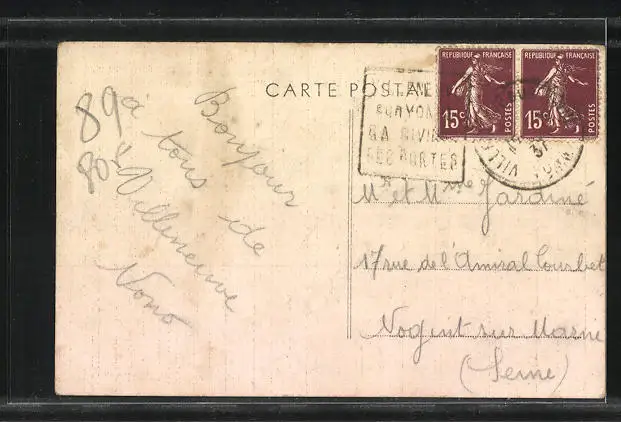 CARTE POSTALE
REPUBLIQUE FRANÇAISE
15c POSTES
REPUBLIQUE FRANÇAISE
15c POSTES
SES PORTES
37
YONNE
89
Bonjour
à tous de
Villeneuve
Nono
Mr et Mme Jardiné
17 rue de l'Amiral Courbet
Nogent sur Marne
(Seine)